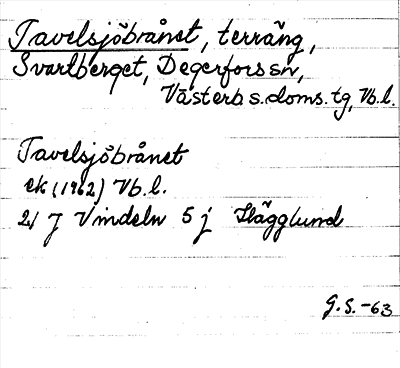 Tavelsjöbrånet, terräng,
Svartberget, Degerfors sn,
Västerb s. doms. tg, Vb. l.
Tavelsjöbrånet
ek (1962) Vb. l.
21 J Vindeln 5 j Hägglund
G. S. -63